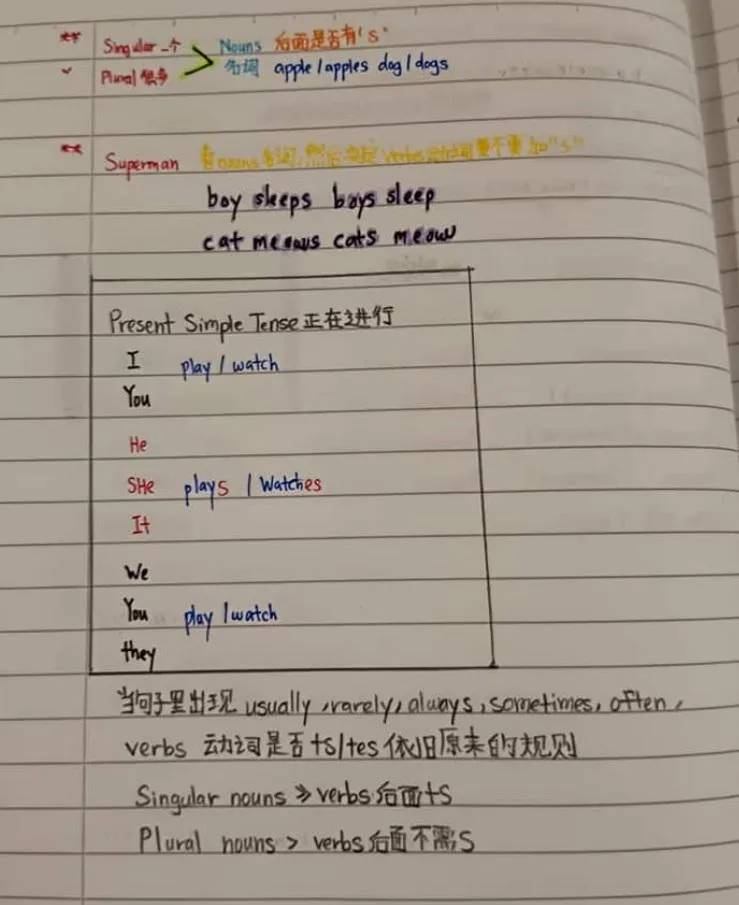 ** Singular 一个 Nouns 后面是否有's'
Plural 很多 名词 apple/apples dog/dogs
** Superman 看nouns名词,然后决定verbs动词要不要加"s"
boy sleeps boys sleep
cat meows cats meow
Present Simple Tense 正在进行
I play / watch
You
He
SHe plays / Watches
It
We
You play /watch
they
当句子里出现 usually, rarely, always, sometimes, often,
verbs 动词是否 +s/+es 依旧原来的规则
Singular nouns » verbs 后面 +s
Plural nouns > verbs 后面不需 s